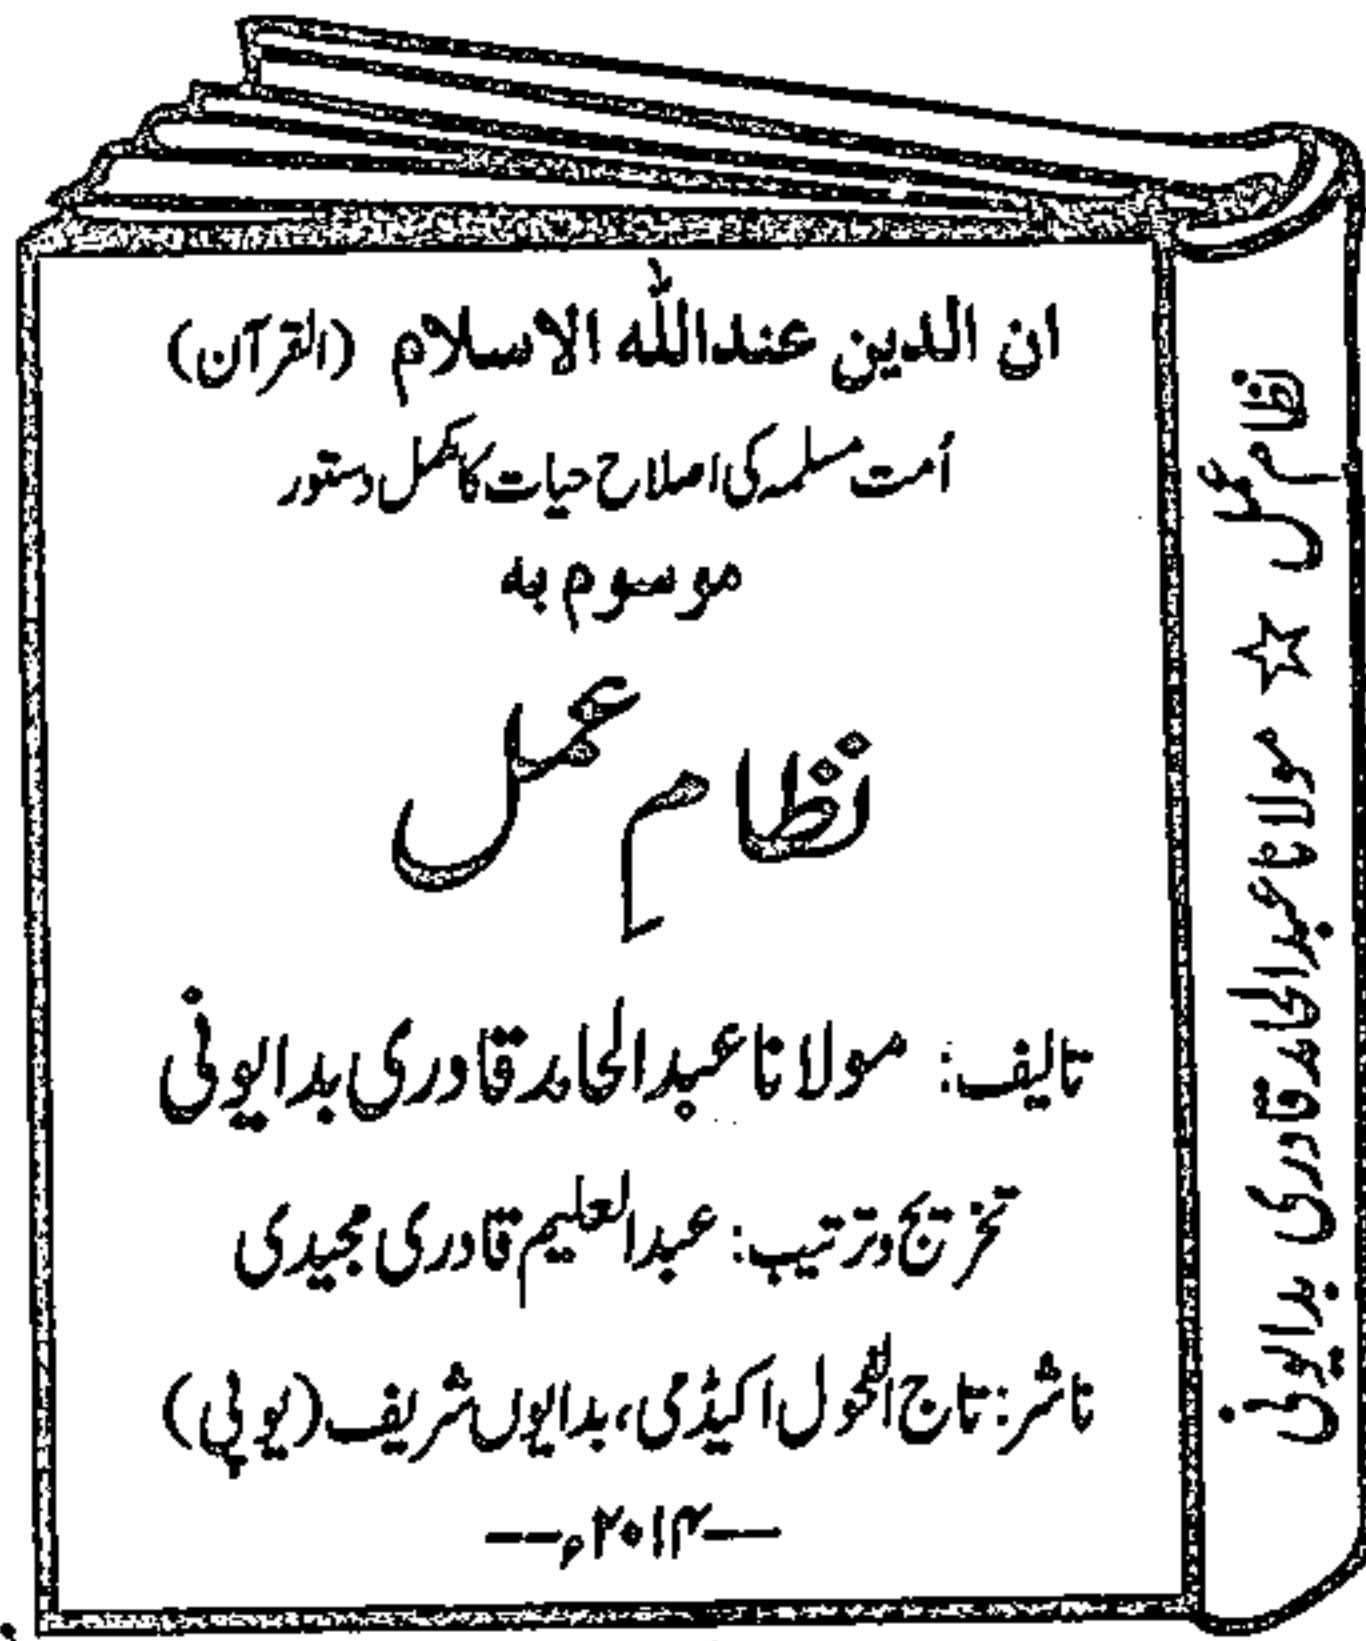 ان الدین عنداللہ الاسلام (القرآن)
اُمت مسلمہ کی اصلاح حیات کا مکمل دستور
موسوم بہ
نظامِ عمل
تالیف: مولانا عبدالحامد قادری بدایونی
تخریج و ترتیب: عبدالعلیم قادری مجیدی
ناشر: تاج الفحول اکیڈمی، بدایوں شریف (یو پی)
—۲۰۱۴ء——
نظامِ عمل ☆ مولانا عبدالحامد قادری بدایونی